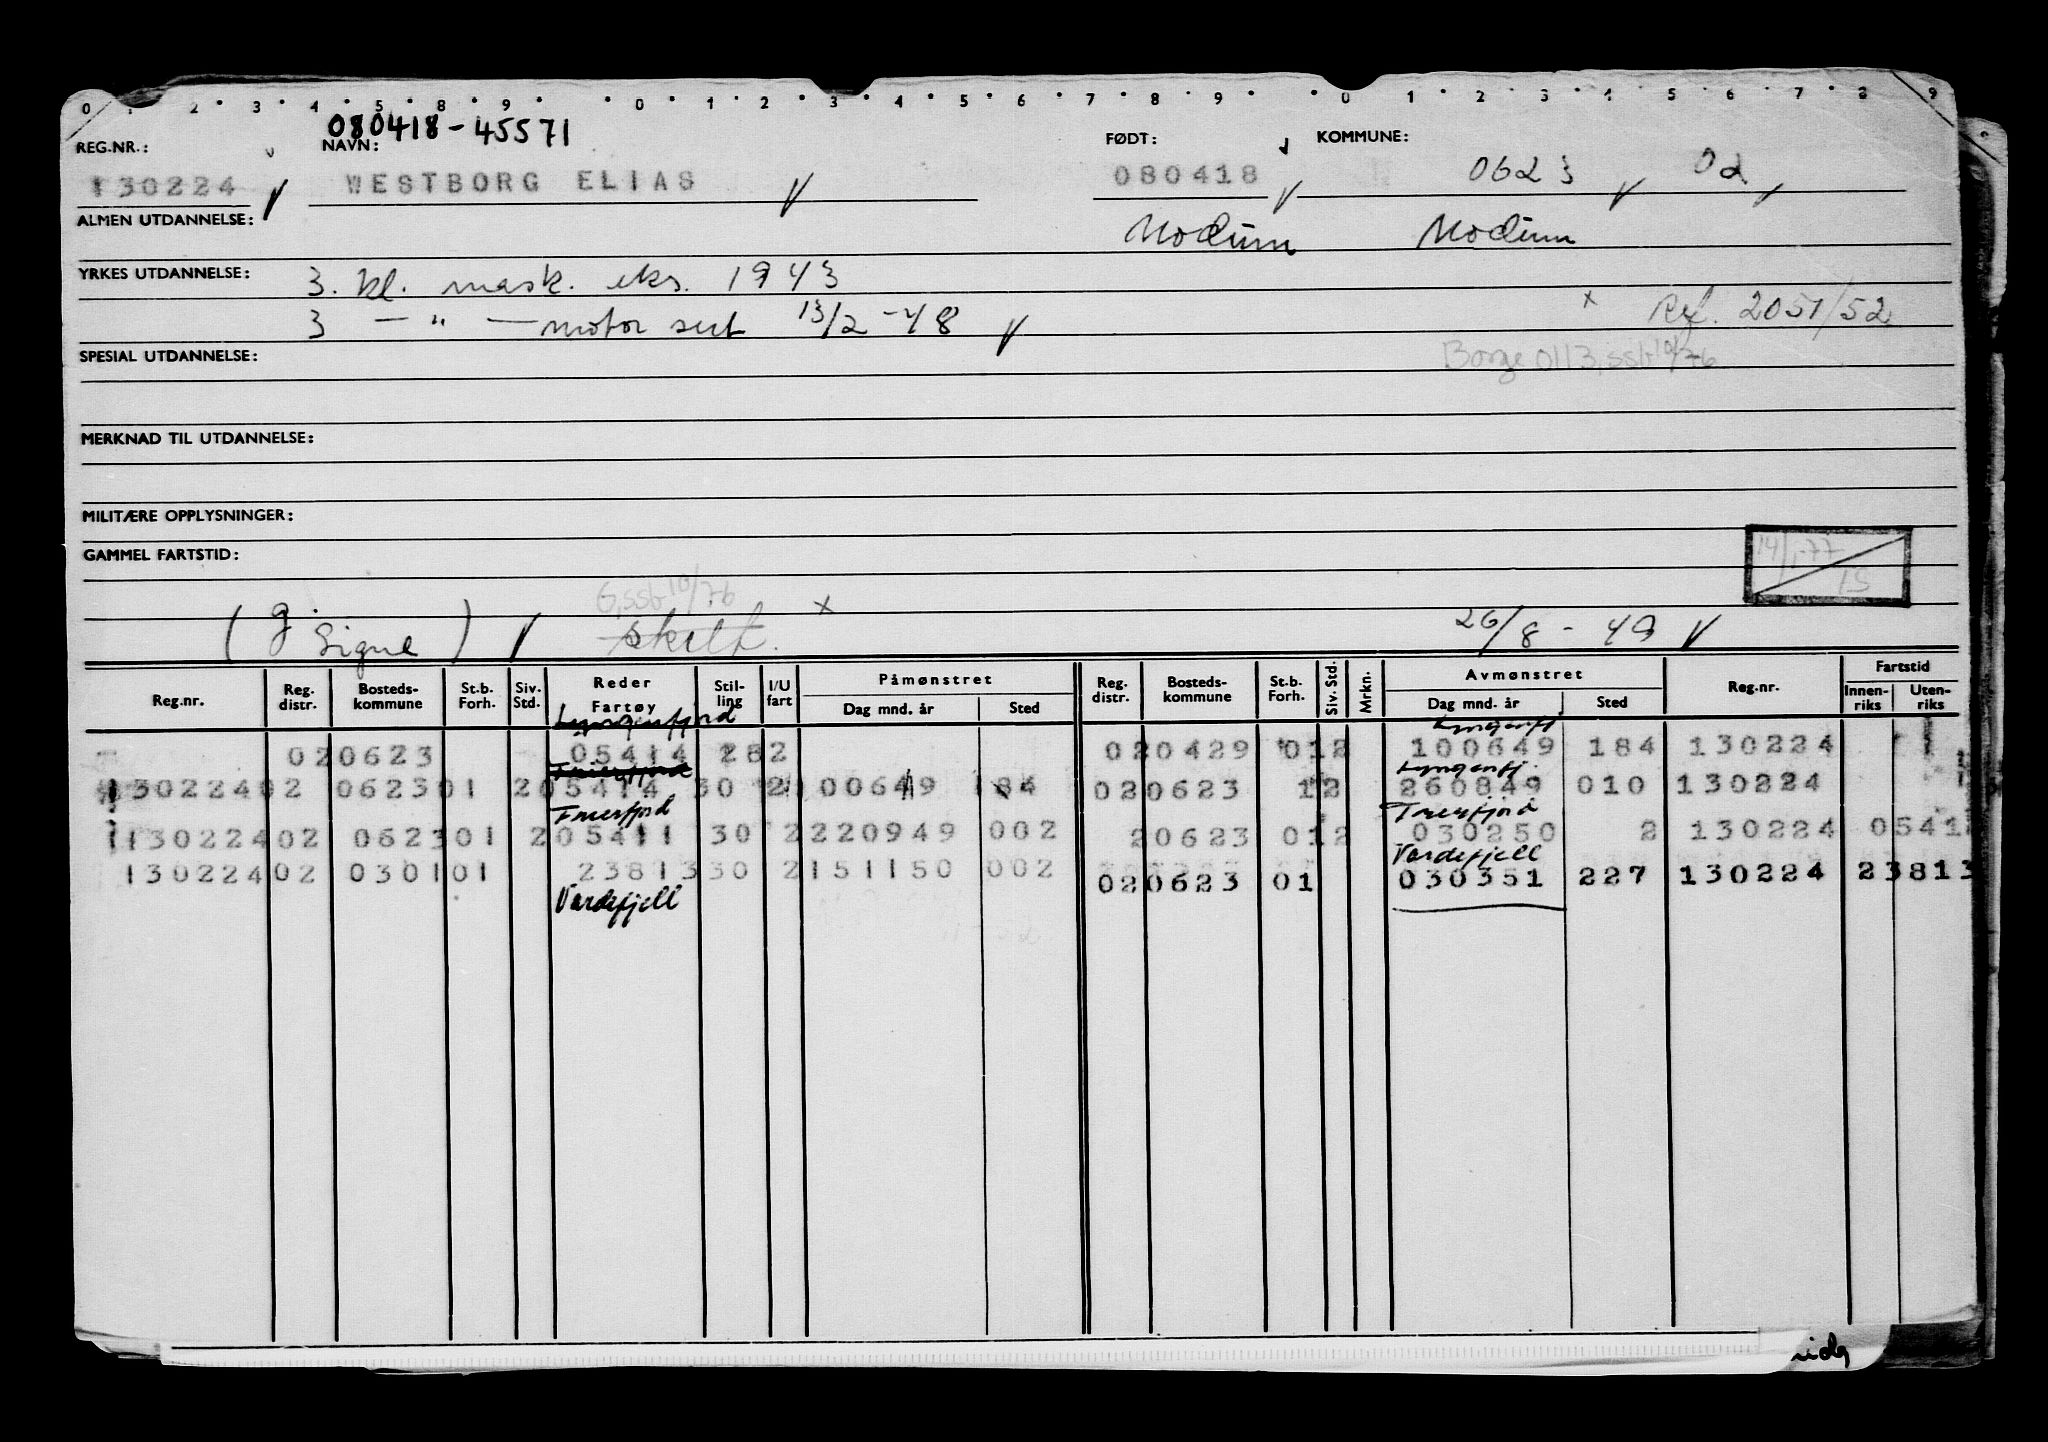 0 1 2 3 4 5 8 9 0 1 2 3 4 5 6 7 8 9 0 1 2 3 4 5 6 7 8 9
080418-45571
REG.NR.: NAVN: FØDT: KOMMUNE:
130224 WESTBORG ELIAS 080418 0623 02
ALMEN UTDANNELSE: Modum Modum
YRKES UTDANNELSE: 3. kl. mask. eks. 1943
3 — " — motor sert 13/2 -48 x Ref. 2051/52
SPESIAL UTDANNELSE: Borge 0113, ssb 10/76
MERKNAD TIL UTDANNELSE:
MILITÆRE OPPLYSNINGER:
GAMMEL FARTSTID: 14/1-77
G, ssb 10/76 x
(g. Signe) skilt. 26/8 - 49
Reg.nr. Reg. distr. Bosteds-kommune St.b. Forh. Siv. Std. Reder Fartøy Stil-ling I/U fart Påmønstret Dag mnd. år Sted Reg. distr. Bosteds-kommune St.b. Forh. Siv. Std. Mrkn. Avmønstret Dag mnd. år Sted Reg.nr. Fartstid Innen-riks Uten-riks
Lyngenfjord Lyngenfj
020623 05414 282 020429 012 100649 184 130224 1
Freierfjord Lyngenfj.
130224 02 0623 01 205414 30 2 100649 184 020623 12 260849 010 130224
Frierfjord Frierfjord
130224 02 0623 01 205411 30 2 220949 002 20623 012 030250 2 130224 0541
Vardefjell
130224 02 0301 01 23813 30 2 151150 002 020623 01 030351 227 130224 23813
Vardefjell